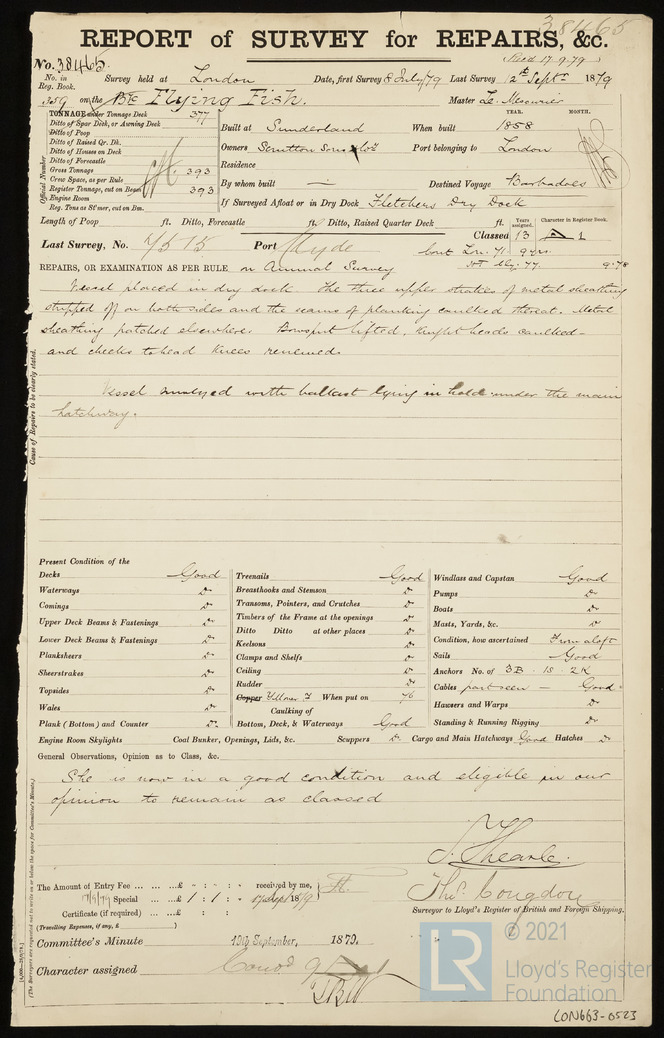 38465
REPORT OF SURVEY for REPAIRS, &c.
No. 38465. Recd 17.9.79
No. in Reg. Book. Survey held at London Date, first Survey 8 July/79 Last Survey 12th Septr 1879
359 on the Bk Flying Fish. Master Le Mesurier
TONNAGE under Tonnage Deck 377
Ditto of Spar Deck, or Awning Deck
Ditto of Poop
Ditto of Raised Qr. Dk.
Ditto of Houses on Deck
Ditto of Forecastle
Gross Tonnage 393
Crew Space, as per Rule
Register Tonnage, cut on Beam 393
Engine Room
Reg. Tons as St'mer, cut on Bm.
Official Number
YEAR. MONTH.
Built at Sunderland When built 1858
Owners Scrutton Sons & Co Port belonging to London
Residence
By whom built — Destined Voyage Barbadoes
If Surveyed Afloat or in Dry Dock Fletchers Dry Dock
Length of Poop ft. Ditto, Forecastle ft. Ditto, Raised Quarter Deck ft.
Years assigned. Character in Register Book.
Classed 13 A 1
Last Survey, No. 4515 Port Clyde
cont Lon. 71. 9 yrs.
9.78
REPAIRS, OR EXAMINATION AS PER RULE on Annual Survey
Vessel placed in dry dock. The three upper strakes of metal sheathing
stripped off on both sides and the seams of planking caulked thereat. Metal
sheathing patched elsewhere. Bowsprit lifted, knight heads caulked
and cheeks to head knees renewed.
Vessel surveyed with ballast lying in hold under the main
hatchway.
Cause of Repairs to be clearly stated.
Present Condition of the
Decks Good
Waterways Do
Comings Do
Upper Deck Beams & Fastenings Do
Lower Deck Beams & Fastenings Do
Planksheers Do
Sheerstrakes Do
Topsides Do
Wales Do
Plank (Bottom) and Counter Do
Treenails Good
Breasthooks and Stemson Do
Transoms, Pointers, and Crutches Do
Timbers of the Frame at the openings Do
Ditto Ditto at other places Do
Keelsons Do
Clamps and Shelfs Do
Ceiling Do
Rudder Do
Copper Yellow When put on 76
Caulking of
Bottom, Deck, & Waterways Good
Windlass and Capstan Good
Pumps Do
Boats Do
Masts, Yards, &c. Do
Condition, how ascertained From aloft
Sails Good
Anchors No. of 3B. 1S. 2K
Cables part seen — Good
Hawsers and Warps Do
Standing & Running Rigging Do
Engine Room Skylights Coal Bunker, Openings, Lids, &c. Scuppers Do Cargo and Main Hatchways Good Hatches Do
General Observations, Opinion as to Class, &c.
She is now in a good condition and eligible in our
opinion to remain as classed
J. Thearle.
Thos. Congdon
Surveyor to Lloyd's Register of British and Foreign Shipping.
The Amount of Entry Fee ... ... ...£ - : - : - received by me,
17/9/79 Special ... ...£ 1 : 1 : - 17 Sep/ 1879
Certificate (if required) ... £ : :
(Travelling Expenses, if any, £ )
Committee's Minute 19th September, 1879.
Character assigned Contd 9 A
(The Surveyors are requested not to write on or below the space for Committee's Minute.)
© 2021
LR
Lloyd's Register
Foundation
LON663-0523